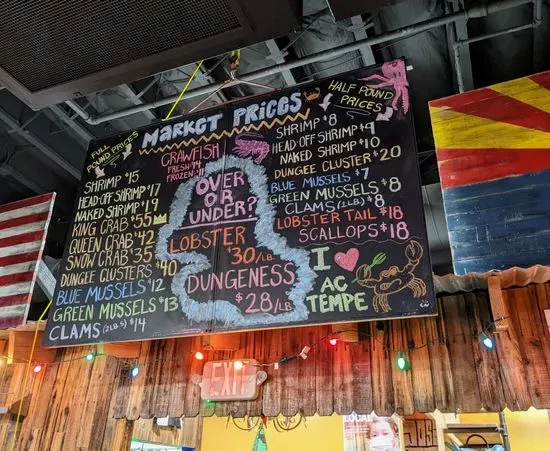 MARKET PRICES
FULL POUND PRICES
SHRIMP $15
HEAD OFF SHRIMP $17
NAKED SHRIMP $19
KING CRAB $55
QUEEN CRAB $42
SNOW CRAB $35
DUNGEE CLUSTERS $40
BLUE MUSSELS $12
GREEN MUSSELS $13
CLAMS (2LB'S) $14
CRAWFISH
FRESH $14
FROZEN $11
OVER
OR
UNDER?
LOBSTER
30/LB
DUNGENESS
$28/LB
HALF POUND
PRICES
SHRIMP $8
HEAD OFF SHRIMP $9
NAKED SHRIMP $10
DUNGEE CLUSTER $20
BLUE MUSSELS $7
GREEN MUSSELS $8
CLAMS (1LB) $8
LOBSTER TAIL $18
SCALLOPS $18
I
AC
TEMPE
EXIT
LOCAL